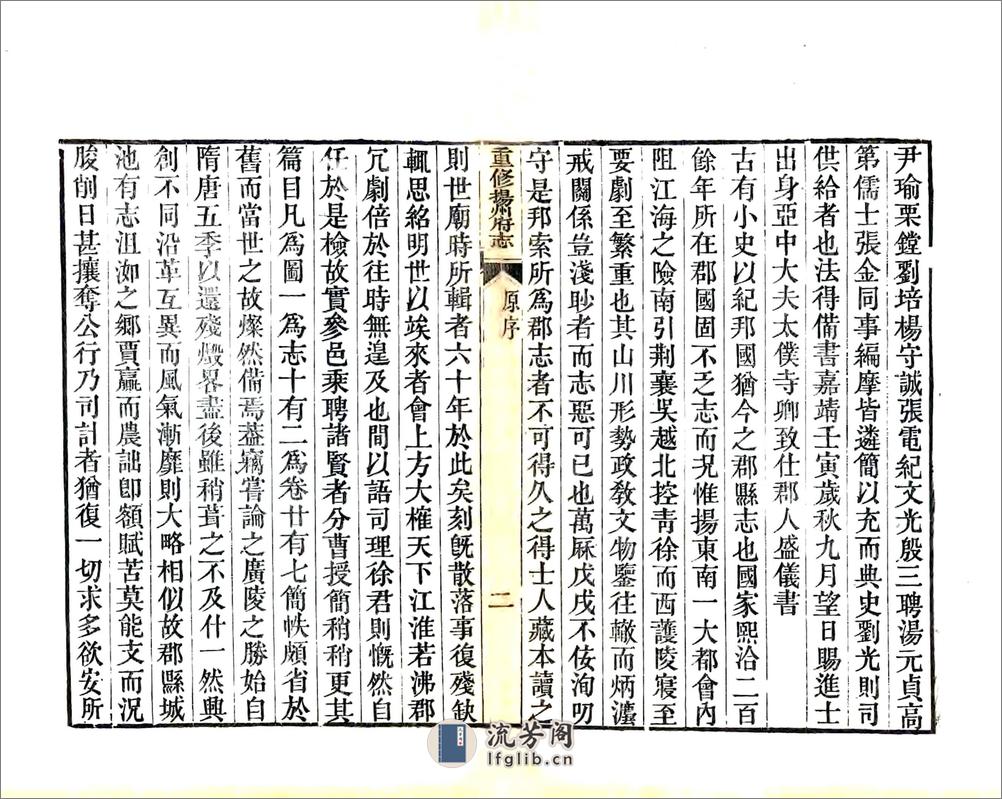 尹瑜栗鏜劉培楊守誠張電紀文光殷三聘湯元貞高
第儒士張金同事編摩皆遴簡以充而典史劉光則司
供給者也法得備書嘉靖壬寅歲秋九月望日賜進士
出身亞中大夫太僕寺卿致仕郡人盛儀書
古有小史以紀邦國猶今之郡縣志也國家熙洽二百
餘年所在郡國固不乏志而況惟揚東南一大都會內
阻江海之險南引荆襄吳越北控青徐而西護陵寢至
要劇至繁重也其山川形勢政敎文物鑒往轍而炳灋
戒關係豈淺眇者而志惡可已也萬厤戊戌不佞洵叨
守是邦索所爲郡志者不可得久之得士人藏本讀之
重修揚州府志
原序
二
則世廟時所輯者六十年於此矣刻旣散落事復殘缺
輒思紹明世以竢來者會上方大榷天下江淮若沸郡
冗劇倍於往時無遑及也間以語司理徐君則慨然自
任於是檢故實參邑乘聘諸賢者分曹授簡稍稍更其
篇目凡爲圖一爲志十有二爲卷廿有七簡帙頗省於
舊而當世之故燦然備焉葢竊嘗論之廣陵之勝始自
隋唐五季以還殘燬畧盡後雖稍葺之不及什一然興
創不同沿革互異而風氣漸靡則大略相似故郡縣城
池有志沮洳之鄉賈贏而農詘卽額賦苦莫能支而況
朘削日甚攘奪公行乃司計者猶復一切求多欲安所
流芳阁
lfglib.cn